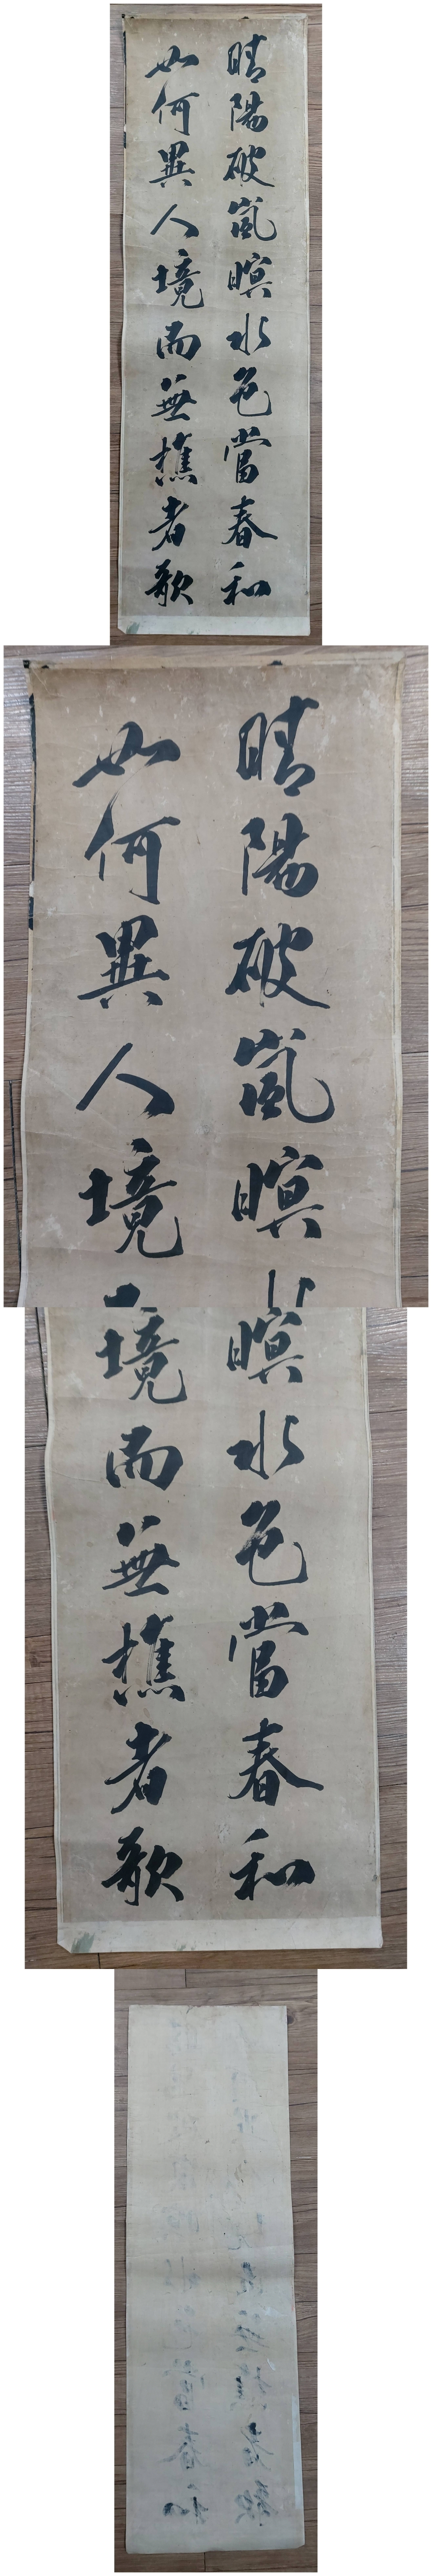 晴陽破嵐暝水色當春和
如何異人境而無樵者歌
晴陽破嵐暝
如何異人境
暝水色當春和
境而無樵者歌